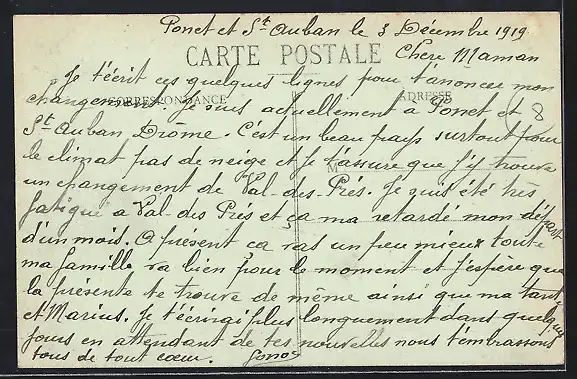 Ponet et St Auban le 3 Décembre 1919
CARTE POSTALE
Chere Maman
Je t'écrit ces quelques lignes pour t'anoncer mon
CORRESPONDANCE
ADRESSE
changement. Je suis actuellement à Ponet et
St Auban Drome. C'est un beau pays surtout pour
le climat pas de neige et je t'assure que j'y trouve
un changement de Val-des-Prés. Je suis été très
fatigué a Val-des Prés et ça ma retardé mon départ
d'un mois. A présent ça vas un peu mieux toute
ma famille va bien pour le moment et j'espère que
la présente te trouve de même ainsi que ma tante
et Marius. Je t'écrirai plus longuement dans quelques
jours en attendant de tes nouvelles nous t'embrassons
tous de tout cœur.